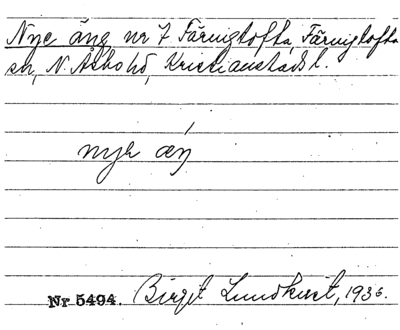 Nye äng nr 7 Färingtofta, Färingtofta
sn, N. Åsbo hd, Kristianstads l.
nyə ǽŋ
Nr 5494. Birgit Lundkvist, 1936.